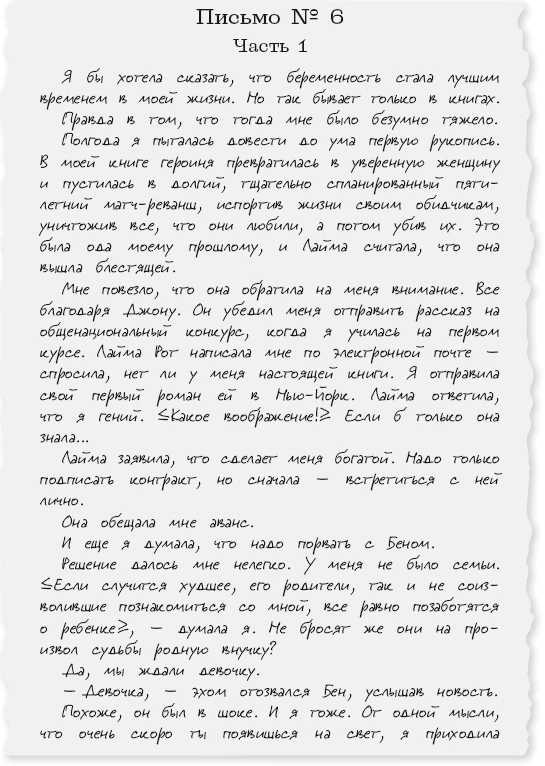 Письмо № 6
Часть 1
Я бы хотела сказать, что беременность стала лучшим
временем в моей жизни. Но так бывает только в книгах.
Правда в том, что тогда мне было безумно тяжело.
Полгода я пыталась довести до ума первую рукопись.
В моей книге героиня превратилась в уверенную женщину
и пустилась в долгий, тщательно спланированный пяти-
летний матч-реванш, испортив жизни своим обидчикам,
уничтожив все, что они любили, а потом убив их. Это
была ода моему прошлому, и Лайма считала, что она
вышла блестящей.
Мне повезло, что она обратила на меня внимание. Все
благодаря Джону. Он убедил меня отправить рассказ на
общенациональный конкурс, когда я училась на первом
курсе. Лайма Рот написала мне по электронной почте —
спросила, нет ли у меня настоящей книги. Я отправила
свой первый роман ей в Нью-Йорк. Лайма ответила,
что я гений. ≤Какое воображение!≥ Если б только она
знала...
Лайма заявила, что сделает меня богатой. Надо только
подписать контракт, но сначала — встретиться с ней
лично.
Она обещала мне аванс.
И еще я думала, что надо порвать с Беном.
Решение далось мне нелегко. У меня не было семьи.
≤Если случится худшее, его родители, так и не соиз-
волившие познакомиться со мной, все равно позаботятся
о ребенке≥, — думала я. Не бросят же они на про-
извол судьбы родную внучку?
Да, мы ждали девочку.
— Девочка, — эхом отозвался Бен, услышав новость.
Похоже, он был в шоке. И я тоже. От одной мысли,
что очень скоро ты появишься на свет, я приходила